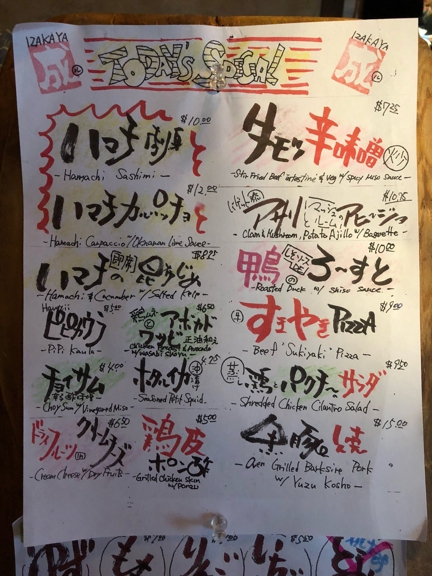 IZAKAYA
TODAY'S SPECIAL
IZAKAYA
$10.00
ハマチ刺身
- Hamachi Sashimi -
$12.00
ハマチカルパッチョ
- Hamachi Carpaccio w/ Okinawan Lime Sauce -
ハマチの昆布じめ
- Hamachi & Cucumber w/ Salted Kelp -
Hawaii
ピピカウラ
- Pipi Kaula -
$6.50
アボカド
w/ wasabi shoyu
$4.00
チョイサム
- Choy Sum w/ Vinegared Miso -
ホタルイカ
4.75
- Seasoned Petit Squid -
$6.50
ドライフルーツ in
クリームチーズ
- Cream Cheese w/ Dry Fruits -
$5.00
鶏皮
ポン酢
- Grilled Chicken Skin w/ Ponzu
$7.25
牛モツ辛味噌
- Stir Fried Beef intestine & Veg w/ Spicy Miso Sauce -
$10.75
アサリとマッシュルームのアヒージョ
- Clam & Mushroom, Potato Ajillo w/ Baguette -
$10.00
鴨ろーすと
- Roasted Duck w/ Shiso Sauce -
$9.00
すきやきPIZZA
- Beef "Sukiyaki" Pizza -
$9.50
鶏とパクチーサラダ
- Shredded Chicken Cilantro Salad -
$15.00
黒豚
焼
- Oven Grilled Barkshire Pork
w/ Yuzu Kosho -